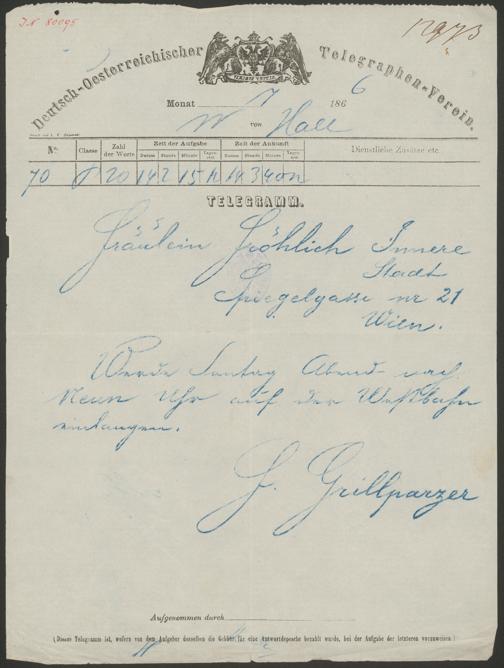 I.N 80095
Deutsch-Oesterreichischer Telegraphen-Verein.
Monat 7 1866
W von Hall
No. Classe Zahl der Worte Zeit der Aufgabe Zeit der Ankunft Dienstliche Zusätze etc.
Datum Stunde Minute Datum Stunde Minute
70 20 14 2 15 14 3 40
TELEGRAMM.
Fräulein Fröhlich Innere
Stadt
Spiegelgasse nr 21
Wien.
Werde Sontag Abend nach
Neun Uhr auf der Westbahn
einlangen.
F. Grillparzer
Aufgenommen durch
(Dieses Telegramm ist, wofern von dem Aufgeber desselben die Gebühr für eine Antwortdepesche bezahlt wurde, bei der Aufgabe der letzteren vorzuweisen.)